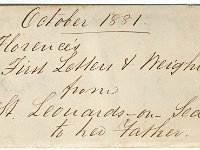 October 1881.
Florence's
First Letters & Weight
from
St. Leonards-on-Sea
to her Father.